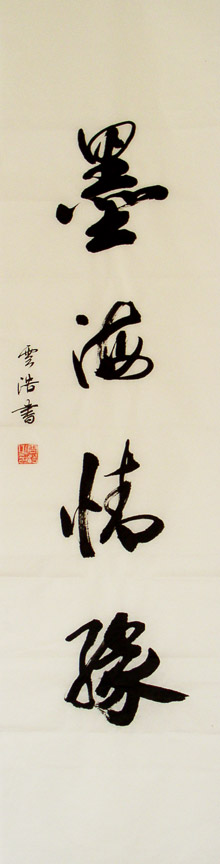 墨海情緣
雲浩書